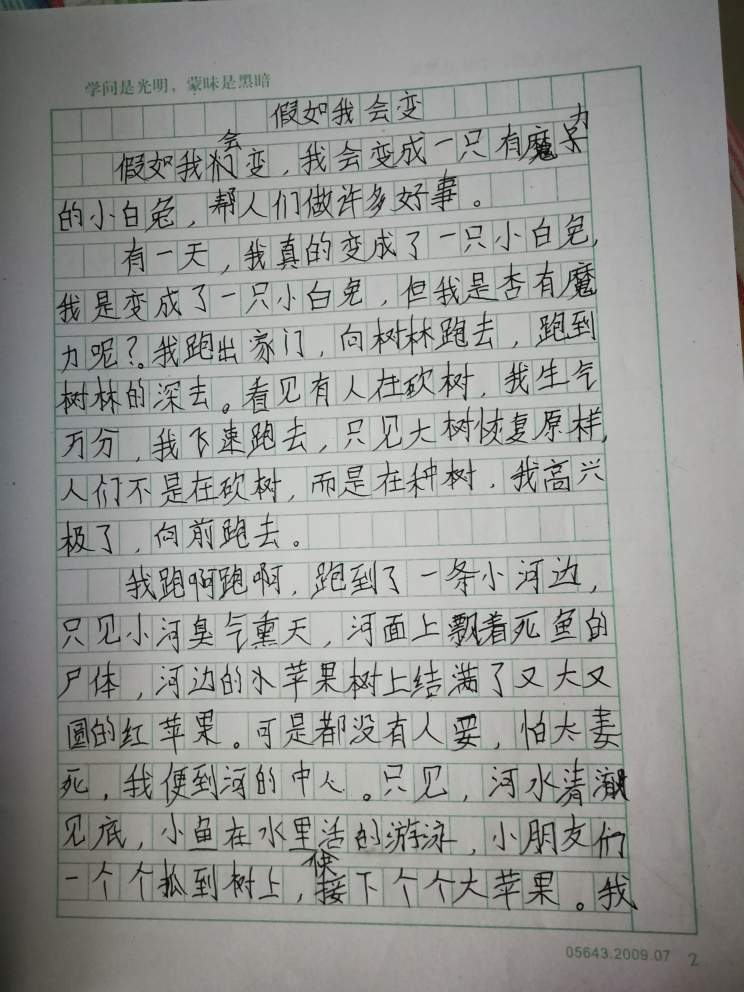 学问是光明，蒙昧是黑暗
假如我会变
会 力
假如我们变，我会变成一只有魔
的小白兔，帮人们做许多好事。
有一天，我真的变成了一只小白兔，
我是变成了一只小白兔，但我是否有魔
力呢？我跑出家门，向树林跑去，跑到
树林的深去。看见有人在砍树，我生气
万分，我飞速跑去，只见大树恢复原样，
人们不是在砍树，而是在种树，我高兴
极了，向前跑去。
我跑啊跑啊，跑到了一条小河边，
只见小河臭气熏天，河面上飘着死鱼的
尸体，河边的水苹果树上结满了又大又
圆的红苹果。可是都没有人要，怕太妻
死，我便到河的中心。只见，河水清澈
见底，小鱼在水里活的游泳，小朋友们
一个个抓到树上，接下个个大苹果。我
05643.2009.07 2